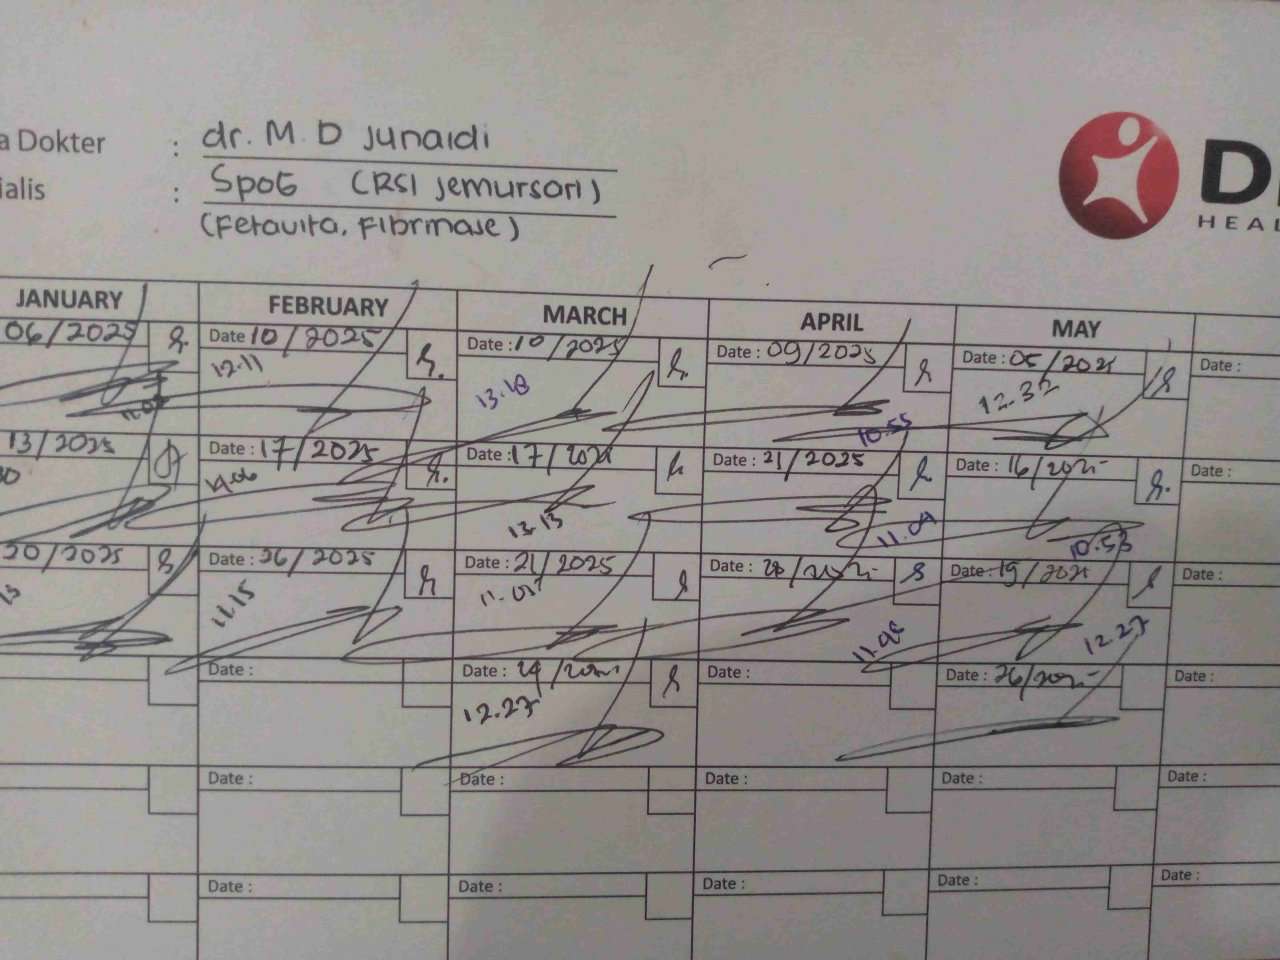 a Dokter : dr. M. D Junaidi
ialis : SpOG (RSI Jemursari)
(Fetavita, Fibrmase)
D
HEAL
JANUARY FEBRUARY MARCH APRIL MAY
06/2025 Date 10/2025 Date : 10/2025 Date : 09/2025 Date : 05/2025 Date :
12.11 13.18 10.55 12.32
13/2025 Date : 17/2025 Date : 17/2025 Date : 21/2025 Date : 16/2025 Date :
14.06 13.13 11.09 10.53
20/2025 Date : 26/2025 Date : 21/2025 Date : 28/2025 Date : 19/2025 Date :
13 11.15 11.01 12.27
Date : Date : 24/2025 Date : Date : 26/2025 Date :
12.27
Date : Date : Date : Date : Date :
Date : Date : Date : Date : Date :